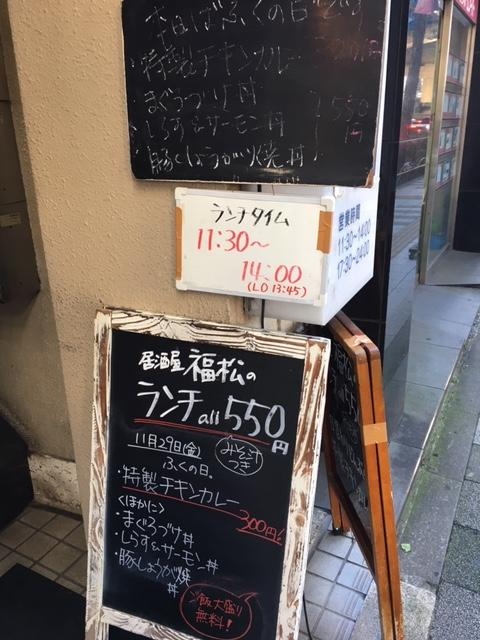 本日はふくの日です
・特製チキンカレー
・まぐろづけ丼
・しらす&サーモン丼
・豚しょうがり焼丼
550
円
ランチタイム
11:30〜
14:00
(LO 13:45)
営業時間
11:30〜14:00
17:30〜24:00
居酒屋 福松の
ランチ all 550円
11月29日(金)
ふくの日。
みそ汁
つき
・特製チキンカレー
300円!
<ほかに>
・まぐろづけ丼
・しらす&サーモン丼
・豚しょうが焼
丼
ご飯大盛り
無料!